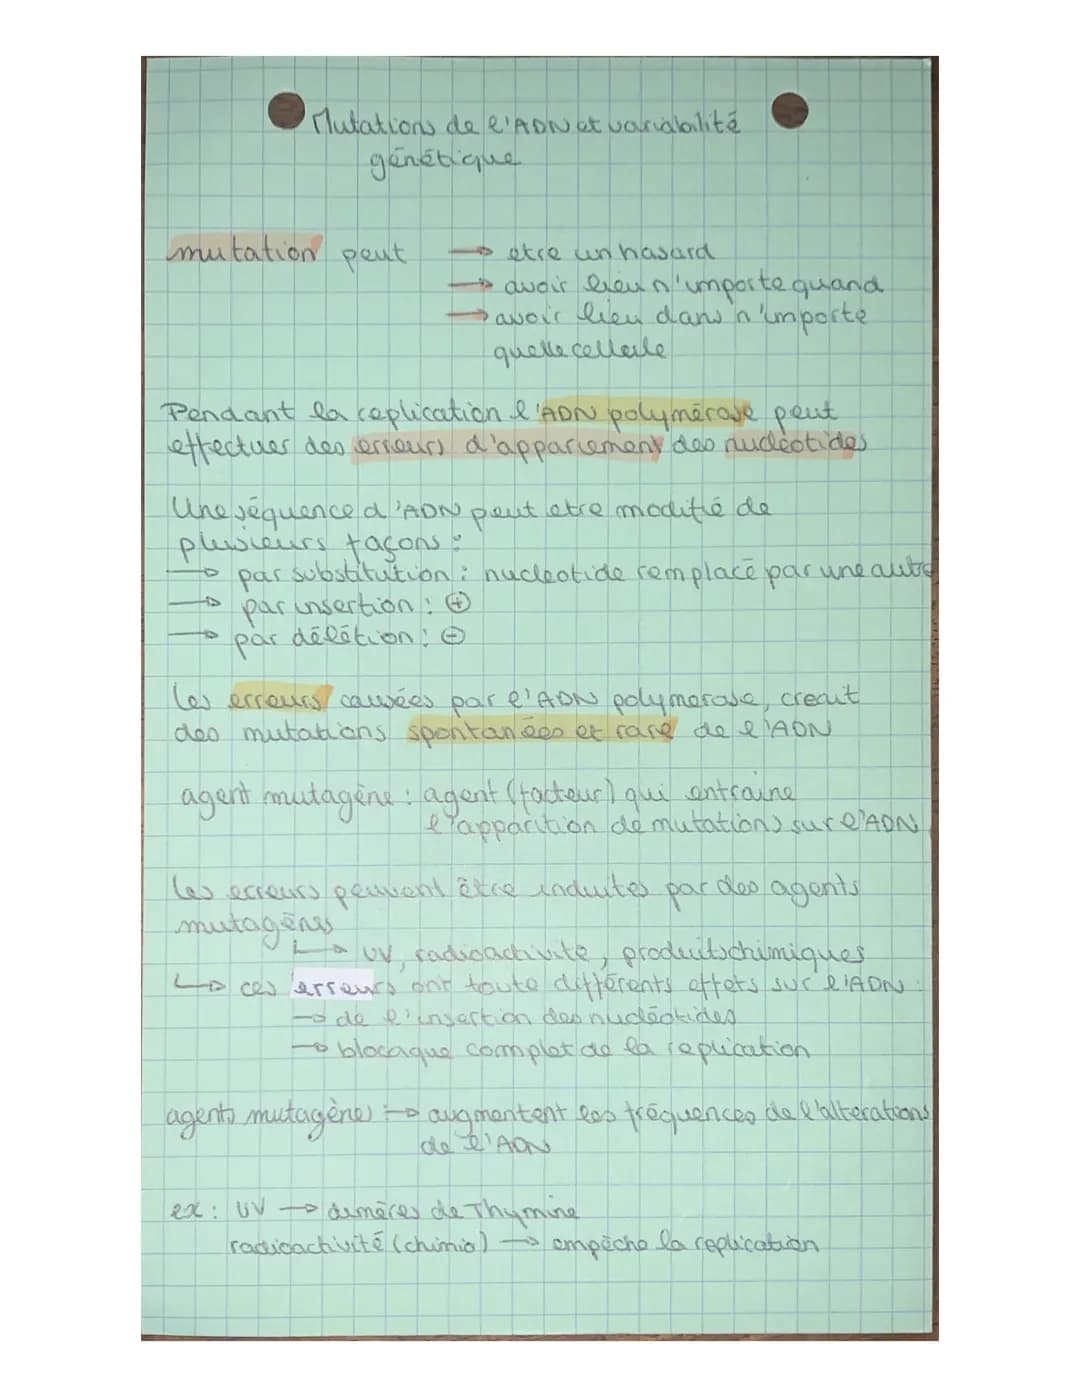 Mutations de l'ADN et variabilité
génétique
mutation peut → etre un hasard
→ avoir lieu n'importe quand
→ avoir lieu dans n'importe
quelle cellule
Pendant la réplication l'ADN polymérase peut
effectuer des erreurs d'appariement des nucléotides
Une séquence d'ADN peut etre modifié de
plusieurs façons :
→ par substitution : nucleotide remplacé par une autre
→ par insertion : ⊕
→ par délétion : ⊖
les erreurs causées par l'ADN polymerase, creait
des mutations spontanées et rare de l'ADN
agent mutagène : agent (facteur) qui entraine
l'apparition de mutations sur l'ADN
les erreurs peuvent être induites par des agents
mutagènes
↳ UV, radioactivité, produits chimiques
↳ ces erreurs ont toute différents effets sur l'ADN :
→ de l'insertion des nucléotides
→ blocaque complet de la replication
agents mutagènes : → augmentent les fréquences de l'alterations
de l'ADN
ex : UV → dimères de Thymine
radioactivité (chimio) → empêche la replication